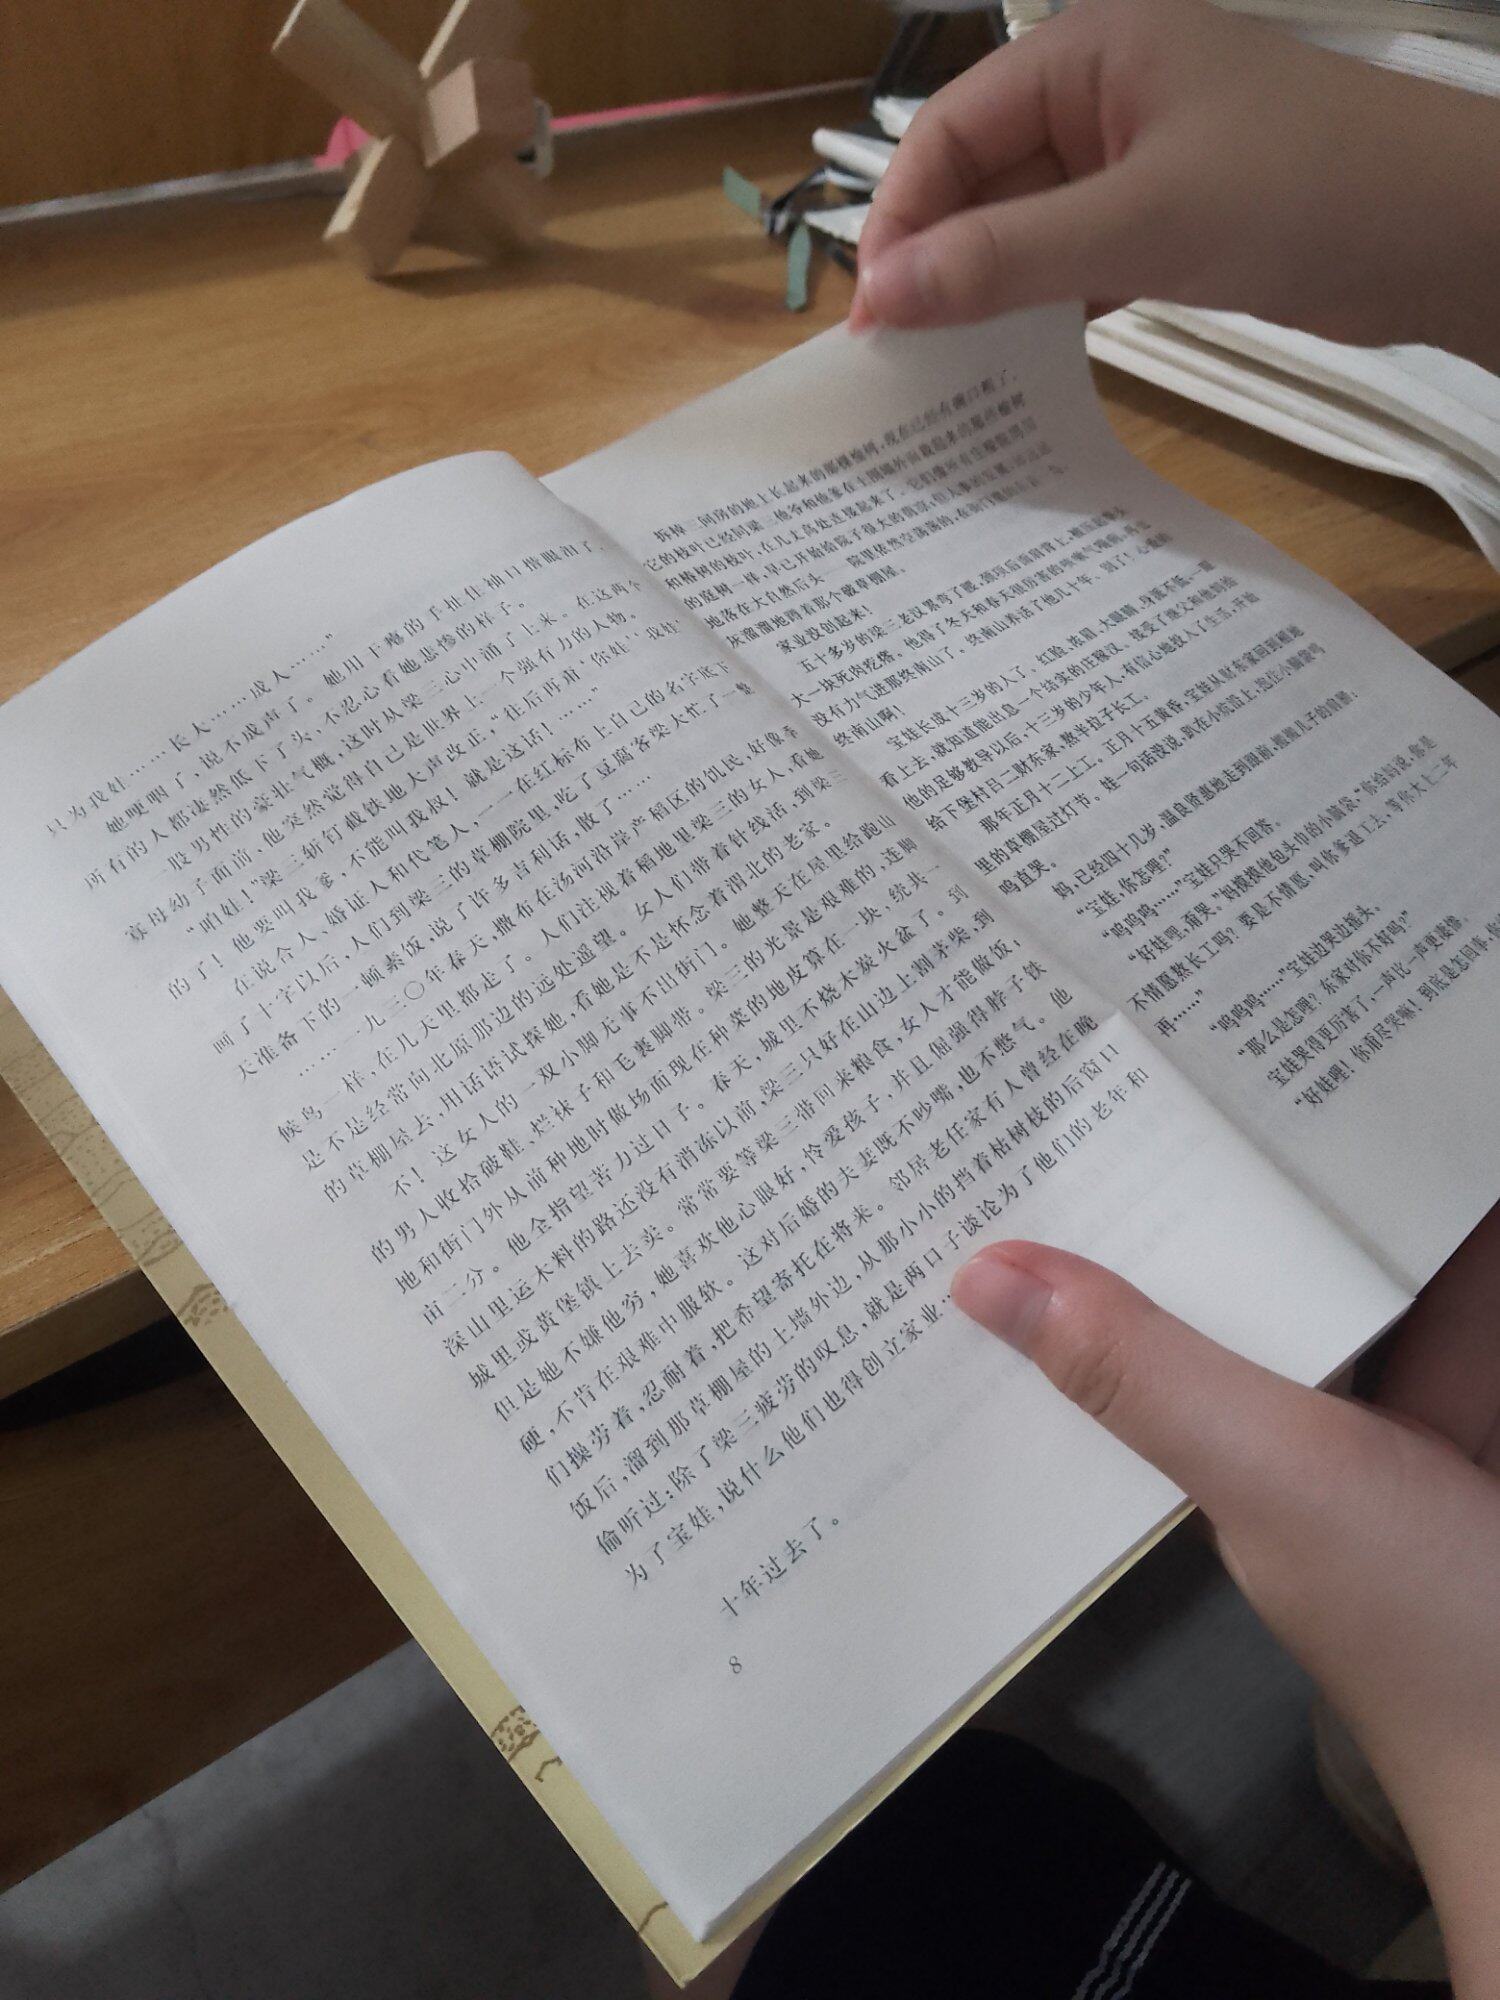 只为我娃……长大……成人……”
她哽咽了，说不成声了。她用干瘪的手扯住袖口揩眼泪了，
所有的人都凄然低下了头，不忍心看她悲惨的样子。
一股男性的豪壮气概，这时从梁三心中涌了上来。在这两个
寡母幼子面前，他突然觉得自己是世界上一个强有力的人物。
“咱娃！”梁三斩钉截铁地大声改正，“往后再甭‘你娃’‘我娃’
的了！他要叫我爹，不能叫我叔！就是这话！……”
在说合人、婚证人和代笔人，一一在红标布上自己的名字底下
画了十字以后，人们到梁三的草棚院里，吃了豆腐客梁大忙了一整
天准备下的一顿素饭，说了许多吉利话，散了……
……一九三〇年春天，撒布在汤河沿岸产稻区的饥民，好像季
候鸟一样，在几天里都走了。人们注视着稻地里梁三的女人，看她
是不是经常向北原那边的远处遥望。女人们带着针线活，到梁三
的草棚屋去，用话语试探她，看她是不是怀念着渭北的老家。
不！这女人的一双小脚无事不出街门。她整天在屋里给跑山
的男人收拾破鞋、烂袜子和毛裹脚带。梁三的光景是艰难的，连脚
地和街门外从前种地时做场面现在种菜的地皮算在一块，统共一
亩二分。他全指望苦力过日子。春天，城里不烧木炭火盆了。到
深山里运木料的路还没有消冻以前，梁三只好在山边上割茅柴，到
城里或黄堡镇上去卖。常常要等梁三带回来粮食，女人才能做饭；
但是她不嫌他穷，她喜欢他心眼好，怜爱孩子，并且倔强得脖子铁
硬，不肯在艰难中服软。这对后婚的夫妻既不吵嘴，也不憋气。他
们操劳着，忍耐着，把希望寄托在将来。邻居老任家有人曾经在晚
饭后，溜到那草棚屋的土墙外边，从那小小的挡着枯树枝的后窗口
偷听过：除了梁三疲劳的叹息，就是两口子谈论为了他们的老年和
为了宝娃，说什么他们也得创立家业…
十年过去了。
8
拆掉三间房的地上长起来的那棵榆树，现在已经有碗口粗了。
它的枝叶已经同梁三他爷和他爹在土围墙外面栽起来的那些榆树
和椿树的枝叶，在几丈高处连接起来了。它们像所有庄稼院周围
的庭树一样，早已开始给院子很大的荫凉，但人事的发展，却远远
地落在大自然后头——院里依然空荡荡的，在街门里
灰溜溜地蹲着那个破草棚屋。
家业没创起来！
五十多岁的梁三老汉累弯了腰，颈项后面肩背上，被压起拳头
大一块死肉疙瘩。他得了冬天和春天很厉害的咳嗽气喘病，再也
没有力气进那终南山了。终南山养活了他几十年，别了！心爱的
终南山啊！
宝娃长成十三岁的人了，红脸，浓眉，大眼睛，身派不低。一眼
看上去，就知道能出息一个结实的庄稼汉。接受了继父和他妈给
他的足够教导以后，十三岁的少年人，有信心地投入了生活，开始
给下堡村吕二财东家，熬半拉子长工。
那年正月十二上工。正月十五黄昏，宝娃从财东家回到稻地
里的草棚屋过灯节。娃一句话没说，趴在小炕沿上，抱住小脑袋呜
呜直哭。
妈，已经四十几岁，温良贤惠地走到跟前，摇摇儿子的肩膀。
“宝娃，你怎哩？”
“呜呜呜……”宝娃只哭不回答。
“好娃哩，甭哭。”妈摸摸他包头巾的小脑袋，“你给妈说，你是
不情愿熬长工吗？要是不情愿，叫你爹退工去，等你大上二年
再……”
“呜呜呜……”宝娃边哭边摇头。
“那么是怎哩？东家对你不好吗？”
宝娃哭得更厉害了，一声比一声更凄惨。
“好娃哩！你甭尽哭嘛！到底是怎回事，你